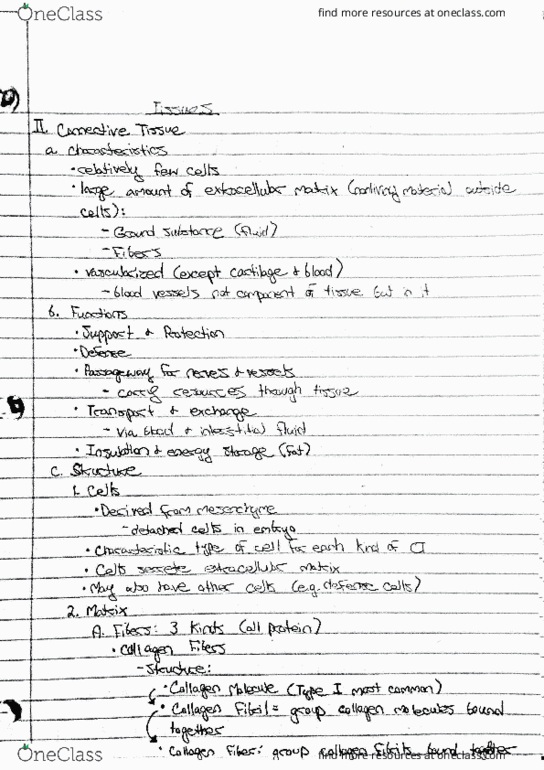 OneClass
find more resources at oneclass.com
Tissues
II. Connective Tissue
a. Characteristics
• relatively few cells
• large amount of extracellular matrix (nonliving material outside
cells):
- Ground substance (fluid)
- Fibers
• vascularized (except cartilage & blood)
- blood vessels not component of tissue but in it
b. Functions
• Support & Protection
• Defense
• Passageway for nerves & vessels
- carry resources though tissue
• Transport & exchange
- via blood & interstitial fluid
• Insulation & energy storage (fat)
C. Structure
1. Cells
• Derived from mesenchyme
- detached cells in embryo
• Characteristic type of cell for each kind of CT
• Cells secrete extracellular matrix
• May also have other cells (e.g. defense cells)
2. Matrix
A. Fibers: 3 kinds (all protein)
• Collagen Fibers
- Structure:
• Collagen Molecule (Type I most common)
• Collagen Fibril = group collagen molecules bound
together
• Collagen Fiber: group collagen fibrils bound together
OneClass
find more resources at oneclass.com